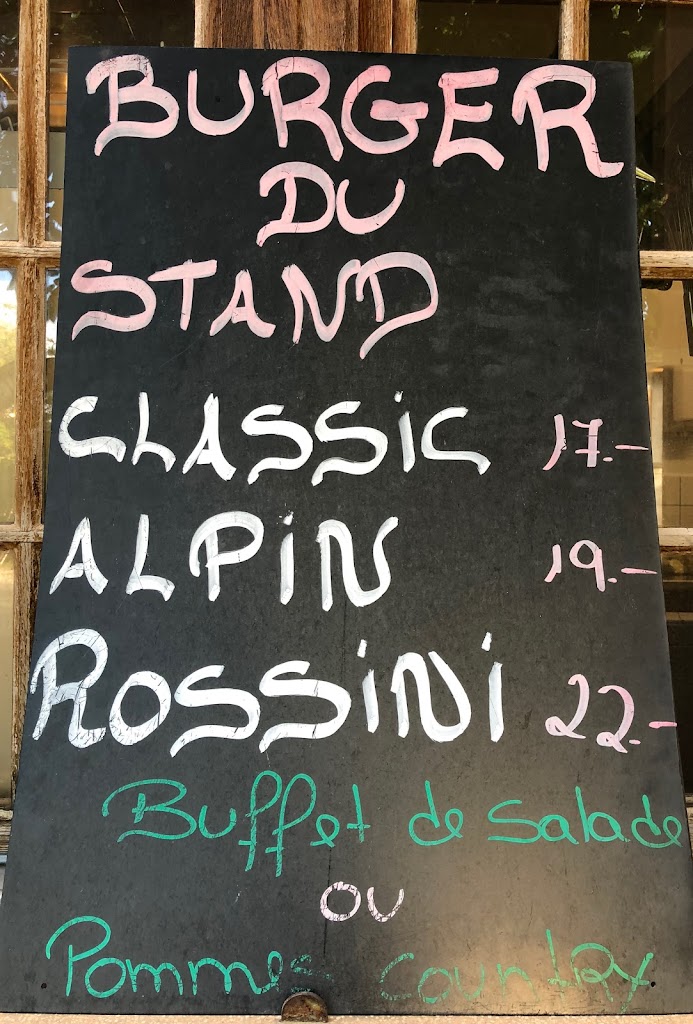 BURGER
DU
STAND
CLASSIC 17.-
ALPIN 19.-
ROSSINI 22.-
Buffet de salade
ou
Pommes country